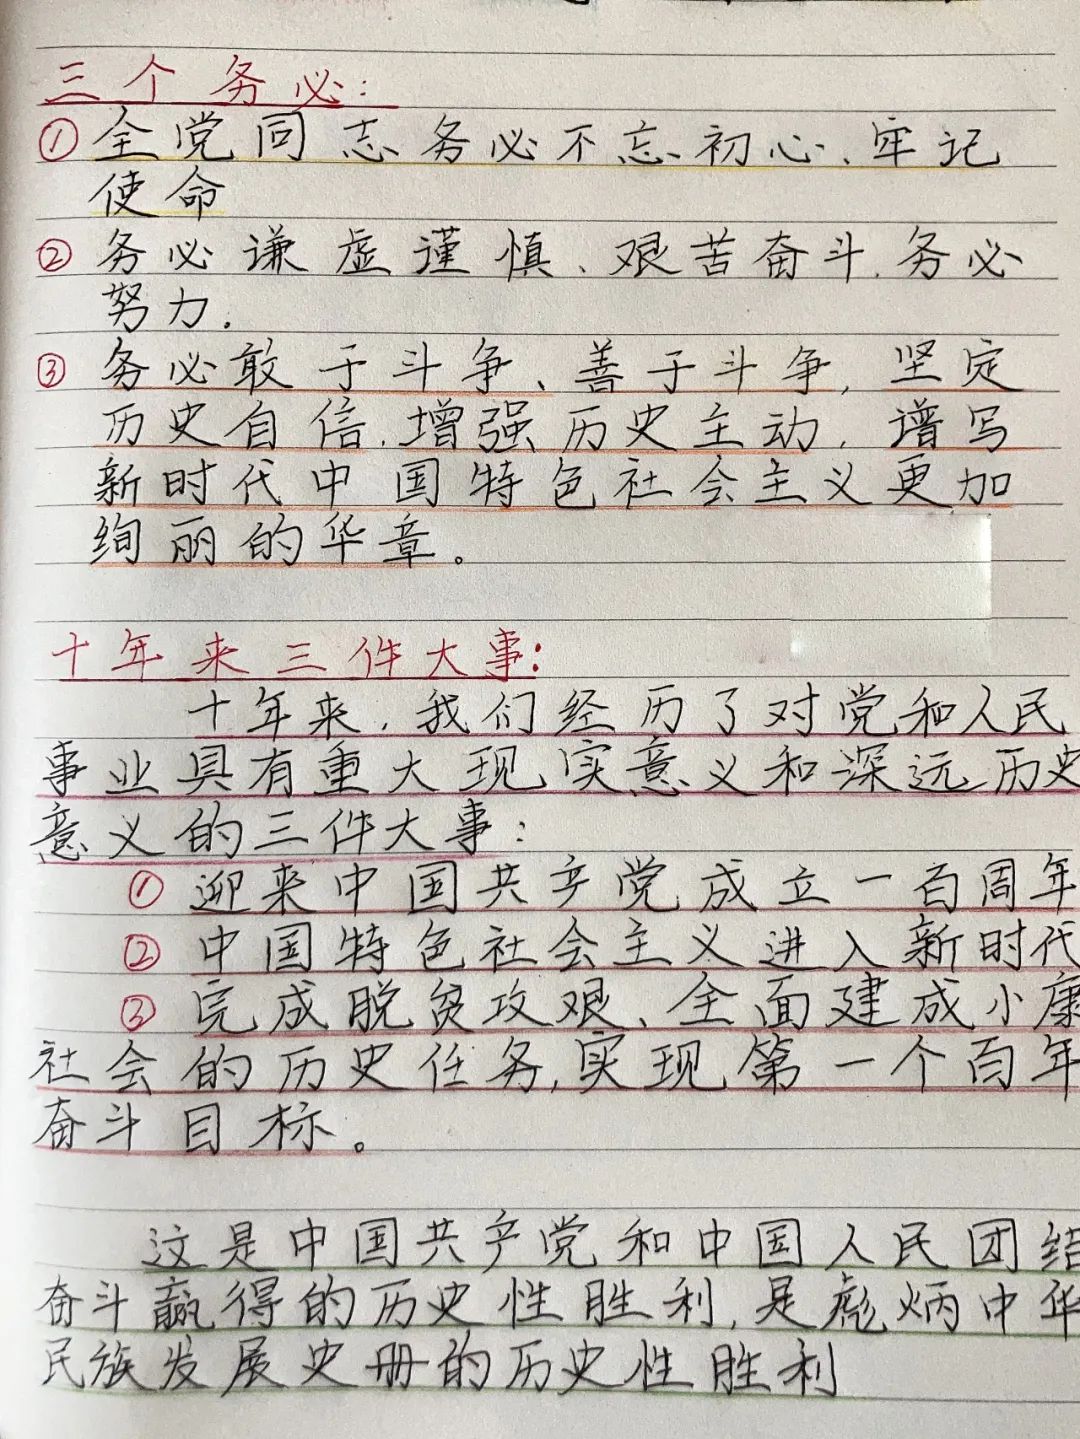 三个务必:
①全党同志务必不忘初心、牢记
使命
②务必谦虚谨慎、艰苦奋斗.务必
努力.
③务必敢于斗争、善于斗争,坚定
历史自信.增强历史主动,谱写
新时代中国特色社会主义更加
绚丽的华章。
十年来三件大事:
十年来,我们经历了对党和人民
事业具有重大现实意义和深远历史
意义的三件大事:
①迎来中国共产党成立一百周年
②中国特色社会主义进入新时代
③完成脱贫攻艰、全面建成小康
社会的历史任务,实现第一个百年
奋斗目标。
这是中国共产党和中国人民团结
奋斗赢得的历史性胜利,是彪炳中华
民族发展史册的历史性胜利